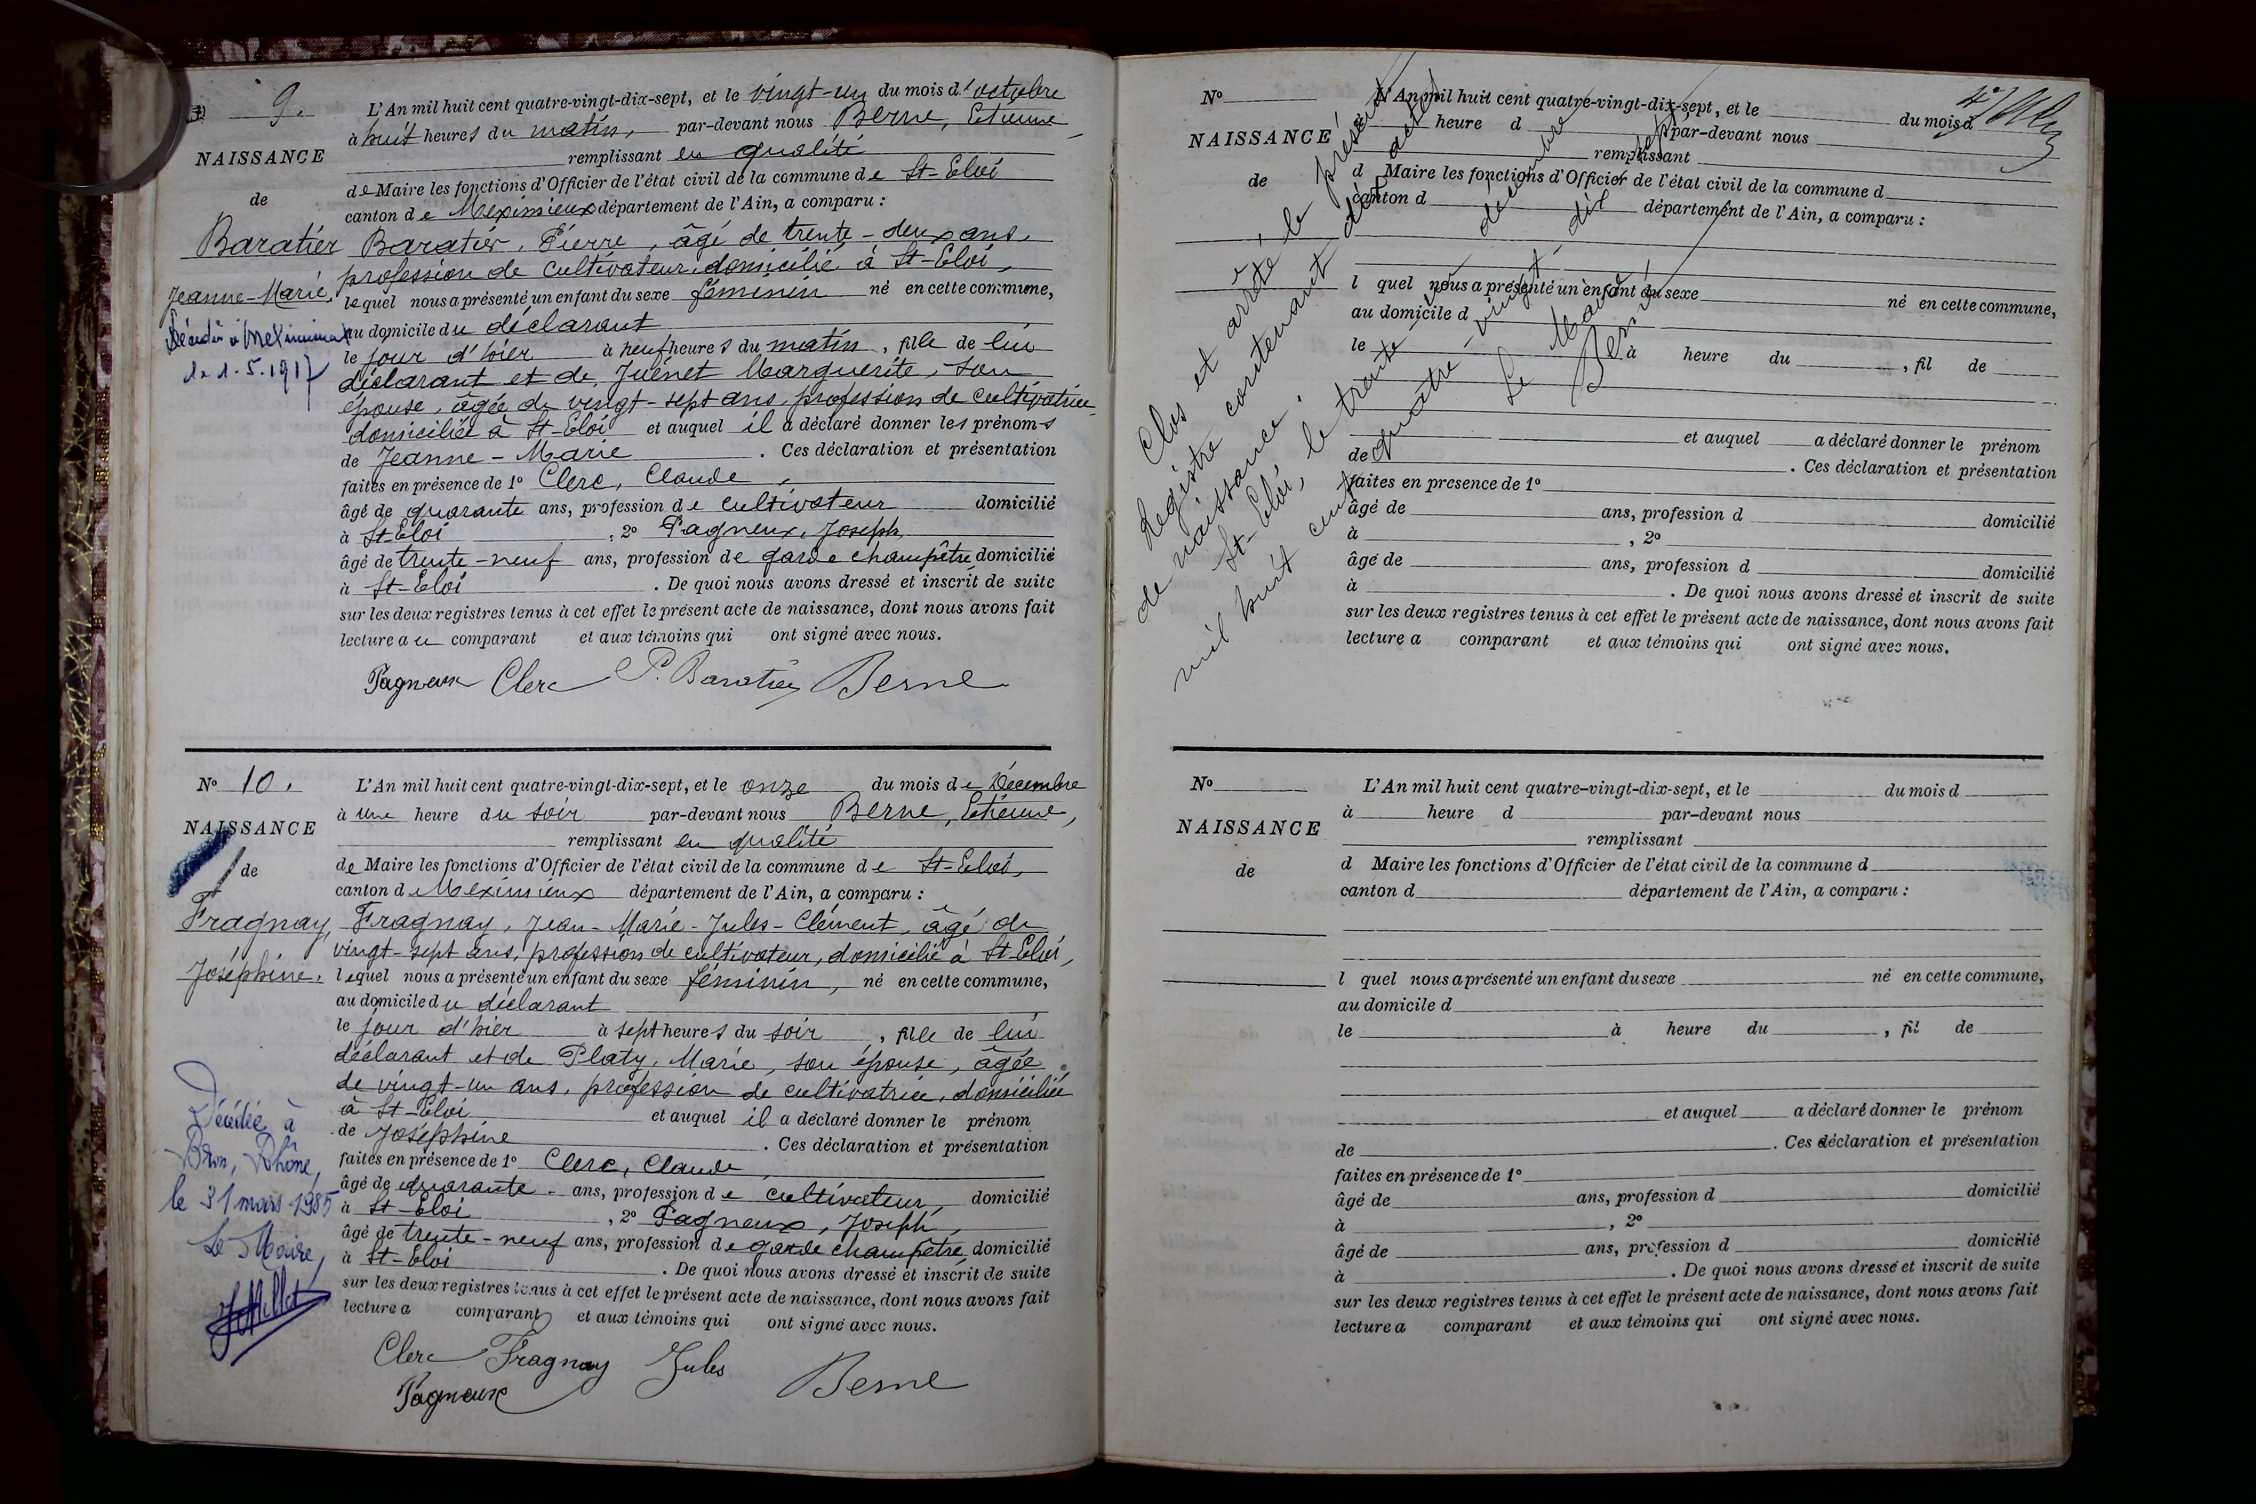 9.
NAISSANCE
de
Baratier
Jeanne-Marie.
Décédée à Meximieux
le 1.5.1917
L'An mil huit cent quatre-vingt-dix-sept, et le vingt-un du mois d'octobre
à huit heures du matin, par-devant nous Berne, Etienne,
remplissant en qualité
de Maire les fonctions d'Officier de l'état civil de la commune de St-Eloi
canton de Meximieux département de l'Ain, a comparu :
Baratier, Pierre, âgé de trente-deux ans,
profession de cultivateur, domicilié à St-Eloi,
lequel nous a présenté un enfant du sexe féminin né en cette commune,
au domicile du déclarant
le jour d'hier à neuf heures du matin, fille de lui
déclarant et de Juénet Marguerite, son
épouse, âgée de vingt-sept ans, profession de cultivatrice,
domiciliée à St-Eloi et auquel il a déclaré donner les prénoms
de Jeanne-Marie. Ces déclaration et présentation
faites en présence de 1º Clerc, Claude,
âgé de quarante ans, profession de cultivateur domicilié
à St-Eloi, 2º Pagneux, Joseph,
âgé de trente-neuf ans, profession de garde champêtre domicilié
à St-Eloi. De quoi nous avons dressé et inscrit de suite
sur les deux registres tenus à cet effet le présent acte de naissance, dont nous avons fait
lecture au comparant et aux témoins qui ont signé avec nous.
Pagneux Clerc P. Baratier Berne
Nº 10.
NAISSANCE
de
Fragnay,
Joséphine.
Décédée à
Bron, Rhône,
le 31 mars 1985
Le Maire,
L'An mil huit cent quatre-vingt-dix-sept, et le onze du mois de Décembre
à une heure du soir par-devant nous Berne, Etienne,
remplissant en qualité
de Maire les fonctions d'Officier de l'état civil de la commune de St-Eloi,
canton de Meximieux département de l'Ain, a comparu :
Fragnay, Jean-Marie-Jules-Clément, âgé de
vingt-sept ans, profession de cultivateur, domicilié à St-Eloi,
lequel nous a présenté un enfant du sexe féminin, né en cette commune,
au domicile du déclarant
le jour d'hier à sept heures du soir, fille de lui
déclarant et de Platy, Marie, son épouse, âgée
de vingt-un ans, profession de cultivatrice, domiciliée
à St-Eloi et auquel il a déclaré donner le prénom
de Joséphine. Ces déclaration et présentation
faites en présence de 1º Clerc, Claude
âgé de quarante - ans, profession de cultivateur, domicilié
à St-Eloi, 2º Pagneux, Joseph,
âgé de trente-neuf ans, profession de garde champêtre domicilié
à St-Eloi. De quoi nous avons dressé et inscrit de suite
sur les deux registres tenus à cet effet le présent acte de naissance, dont nous avons fait
lecture a comparant et aux témoins qui ont signé avec nous.
Clerc Fragnay Jules Berne
Pagneux
Nº
NAISSANCE
de
L'An mil huit cent quatre-vingt-dix-sept, et le du mois d
à heure d par-devant nous
remplissant
d Maire les fonctions d'Officier de l'état civil de la commune d
canton d département de l'Ain, a comparu :
l quel nous a présenté un enfant du sexe né en cette commune,
au domicile d
le à heure du , fil de
et auquel a déclaré donner le prénom
de . Ces déclaration et présentation
faites en présence de 1º
âgé de ans, profession d domicilié
à , 2º
âgé de ans, profession d domicilié
à . De quoi nous avons dressé et inscrit de suite
sur les deux registres tenus à cet effet le présent acte de naissance, dont nous avons fait
lecture a comparant et aux témoins qui ont signé avec nous.
Clos et arrêté le présent
Registre contenant dix actes
de naissance.
St-Eloi, le trente un décembre
mil huit cent quatre-vingt dix sept
Le Maire
Berne
Nº
NAISSANCE
de
L'An mil huit cent quatre-vingt-dix-sept, et le du mois d
à heure d par-devant nous
remplissant
d Maire les fonctions d'Officier de l'état civil de la commune d
canton d département de l'Ain, a comparu :
l quel nous a présenté un enfant du sexe né en cette commune,
au domicile d
le à heure du , fil de
et auquel a déclaré donner le prénom
de . Ces déclaration et présentation
faites en présence de 1º
âgé de ans, profession d domicilié
à , 2º
âgé de ans, profession d domicilié
à . De quoi nous avons dressé et inscrit de suite
sur les deux registres tenus à cet effet le présent acte de naissance, dont nous avons fait
lecture a comparant et aux témoins qui ont signé avec nous.